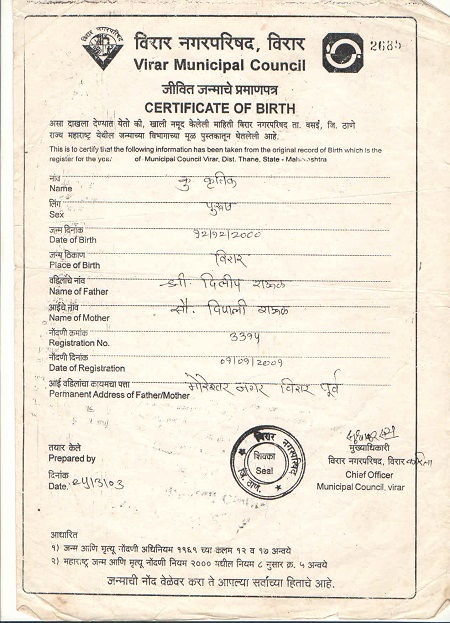 विरार नगरपरिषद, विरार
Virar Municipal Council
2685
जीवित जन्माचे प्रमाणपत्र
CERTIFICATE OF BIRTH
असा दाखला देण्यात येतो की, खाली नमूद केलेली माहिती विरार नगरपरिषद ता. वसई, जि. ठाणे
राज्य महाराष्ट्र येथील जन्माच्या विभागाच्या मूळ पुस्तकातून घेतलेली आहे.
This is to certify that the following information has been taken from the original record of Birth which is the
register for the year of Municipal Council Virar, Dist. Thane, State - Maharashtra
नांव
Name
कु कृतिक
लिंग
Sex
पुरूष
जन्म दिनांक
Date of Birth
१२/१२/२०००
जन्म ठिकाण
Place of Birth
विरार
वडिलांचे नांव
Name of Father
श्री. दिलीप राऊळ
आईचे नांव
Name of Mother
सौ. दिपाली राऊळ
नोंदणी क्रमांक
Registration No.
३३१५
नोंदणी दिनांक
Date of Registration
०१/०१/२००१
आई वडिलांचा कायमचा पत्ता
Permanent Address of Father/Mother
मोरेश्वर नगर विरार पूर्व
तयार केले
Prepared by
दिनांक
Date.
विरार नगरपरिषद
शिक्का
Seal
जि. ठाणे.
मुख्याधिकारी
विरार नगरपरिषद, विरार
Chief Officer
Municipal Council, virar
आधारित
१) जन्म आणि मृत्यू नोंदणी अधिनियम १९६९ च्या कलम १२ व १७ अन्वये
२) महाराष्ट्र जन्म आणि मृत्यू नोंदणी नियम २००० मधील नियम ८ नुसार क्र. ५ अन्वये
जन्माची नोंद वेळेवर करा ते आपल्या सर्वांच्या हिताचे आहे.